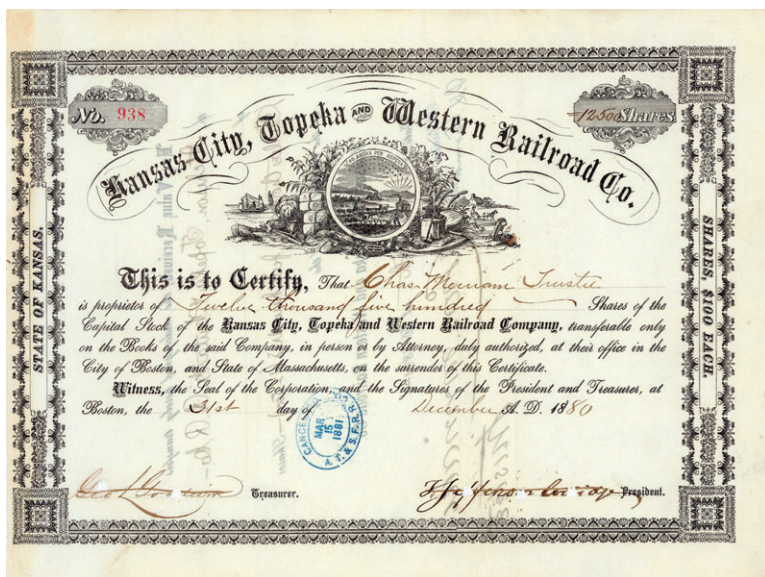 No. 938
12500 Shares
Kansas City, Topeka AND Western Railroad Co.
AD ASTRA PER ASPERA
This is to Certify, That Chas Merriam Trustee
is proprietor of Twelve thousand five hundred Shares of the
Capital Stock of the Kansas City, Topeka and Western Railroad Company, transferable only
on the Books of the said Company, in person or by Attorney, duly authorized, at their office in the
City of Boston, and State of Massachusetts, on the surrender of this Certificate.
Witness, the Seal of the Corporation, and the Signatures of the President and Treasurer, at
Boston, the 31st day of December A. D. 1880
CANCELLED
MAR
15
1881
A. T. & S. F. R. R.
Treasurer.
T Jefferson Coolidge President.
STATE OF KANSAS.
SHARES, $100 EACH.